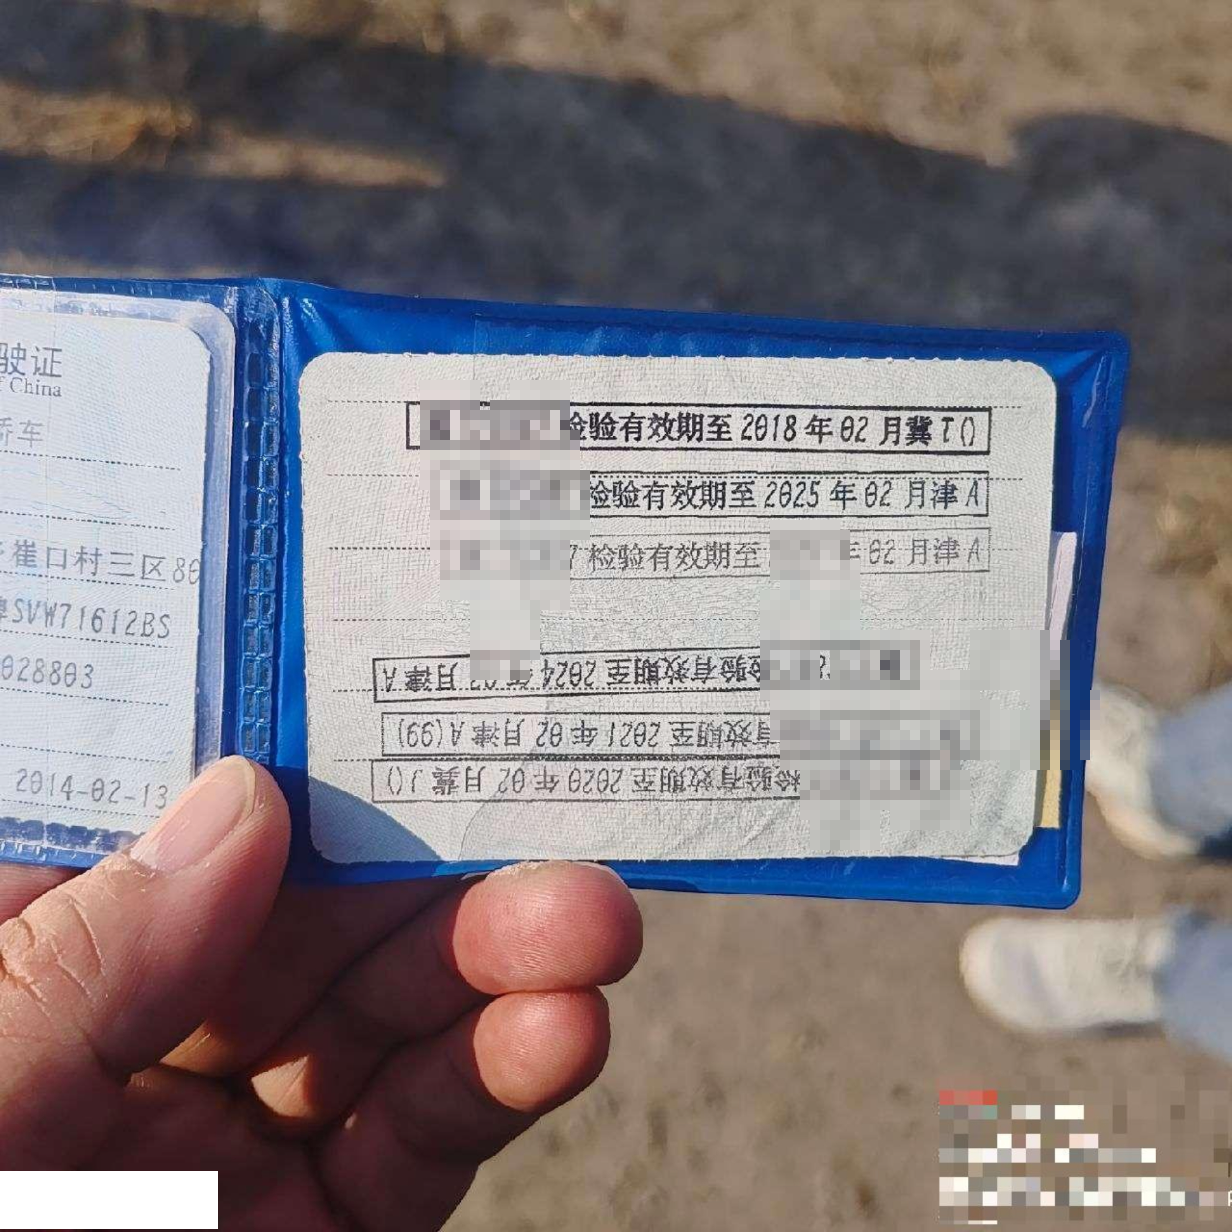 驶证
f China
轿车
崔口村三区80
牌SVW71612BS
028803
2014-02-13
检验有效期至2018年02月冀T()
检验有效期至2025年02月津A
7检验有效期至 年02月津A
检验有效期至2024年02月津A
有效期至2021年02月津A(99)
检验有效期至2020年02月冀J()